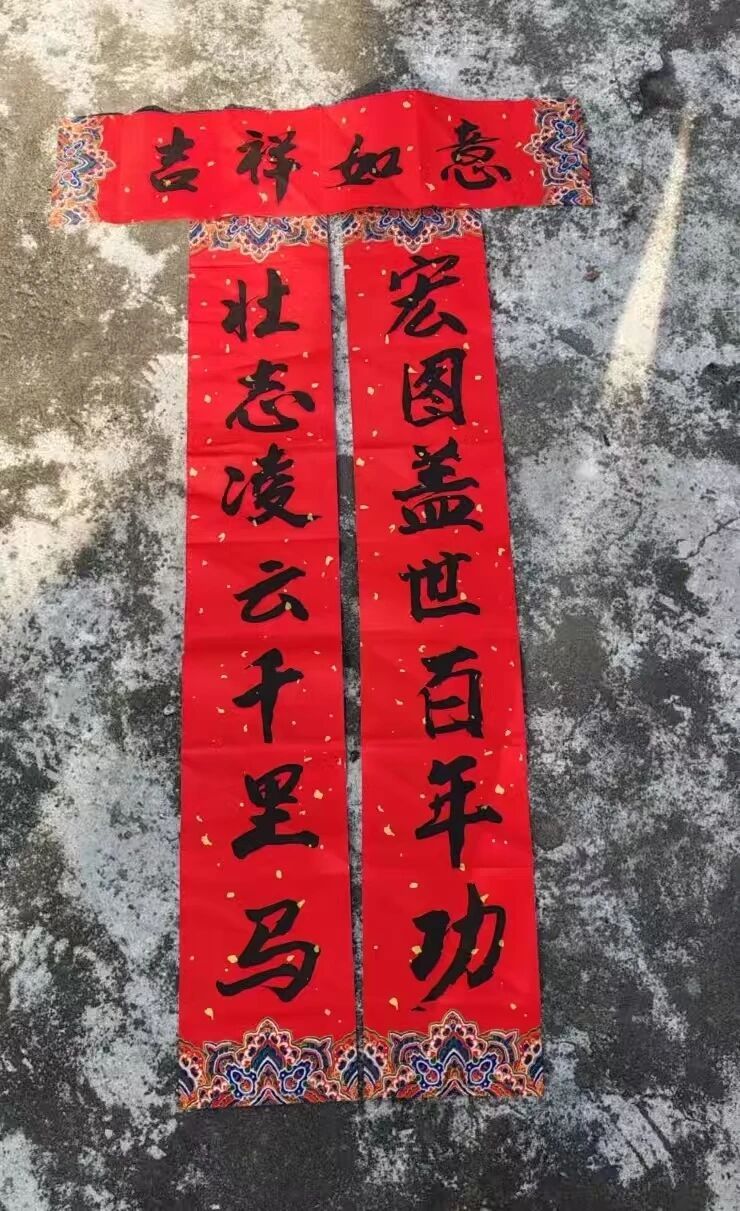 吉祥如意
壮志凌云千里马
宏图盖世百年功